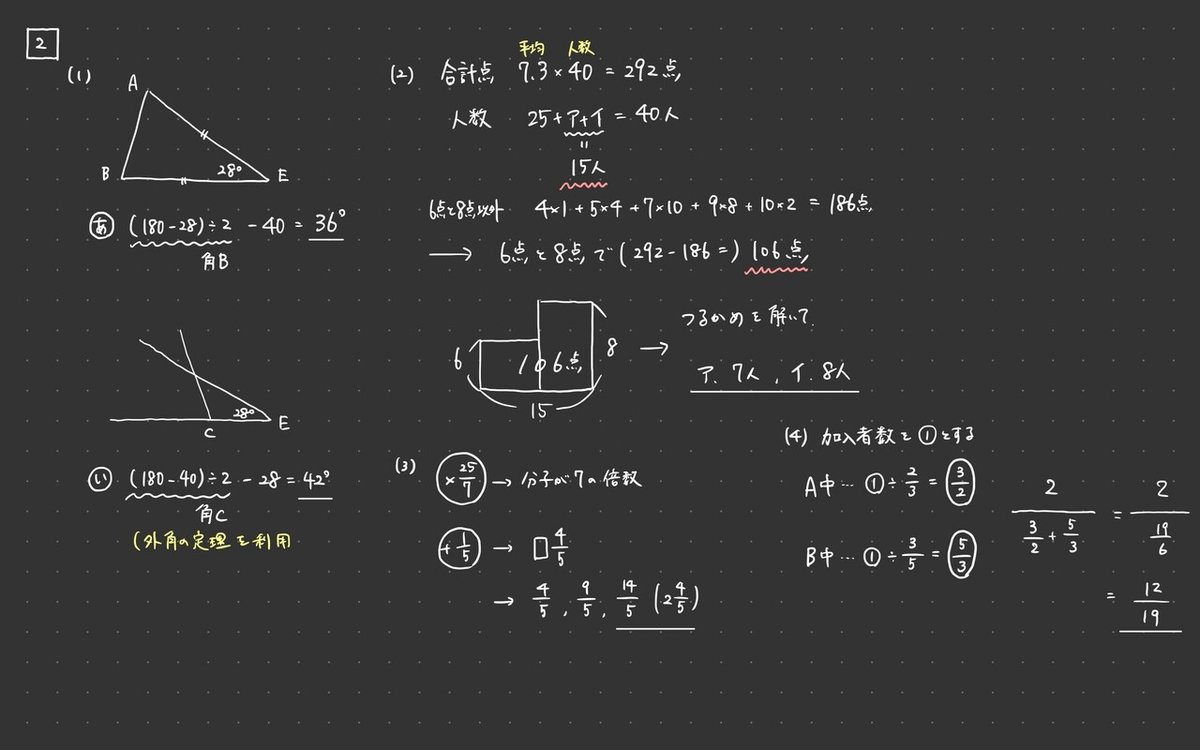 2
(1)
A
B
28°
E
あ (180-28)÷2 - 40 = 36°
角B
28°
C
E
い (180-40)÷2 - 28 = 42°
角C
(外角の定理を利用
平均 人数
(2) 合計点 7.3×40 = 292点
人数 25+ア+イ = 40人
=
15人
6点と8点以外 4×1+5×4+7×10+9×8+10×2 = 186点
→ 6点と8点で(292-186=) 106点
6
106点
8
15
→ つるかめを解いて
ア. 7人, イ. 8人
(3) ×25/7 → 分子が7の倍数
+1/5 → □4/5
→ 4/5, 9/5, 14/5 (2 4/5)
(4) 加入者数を①とする
A中… ①÷2/3 = 3/2
B中… ①÷3/5 = 5/3
2/(3/2+5/3) = 2/(19/6)
= 12/19